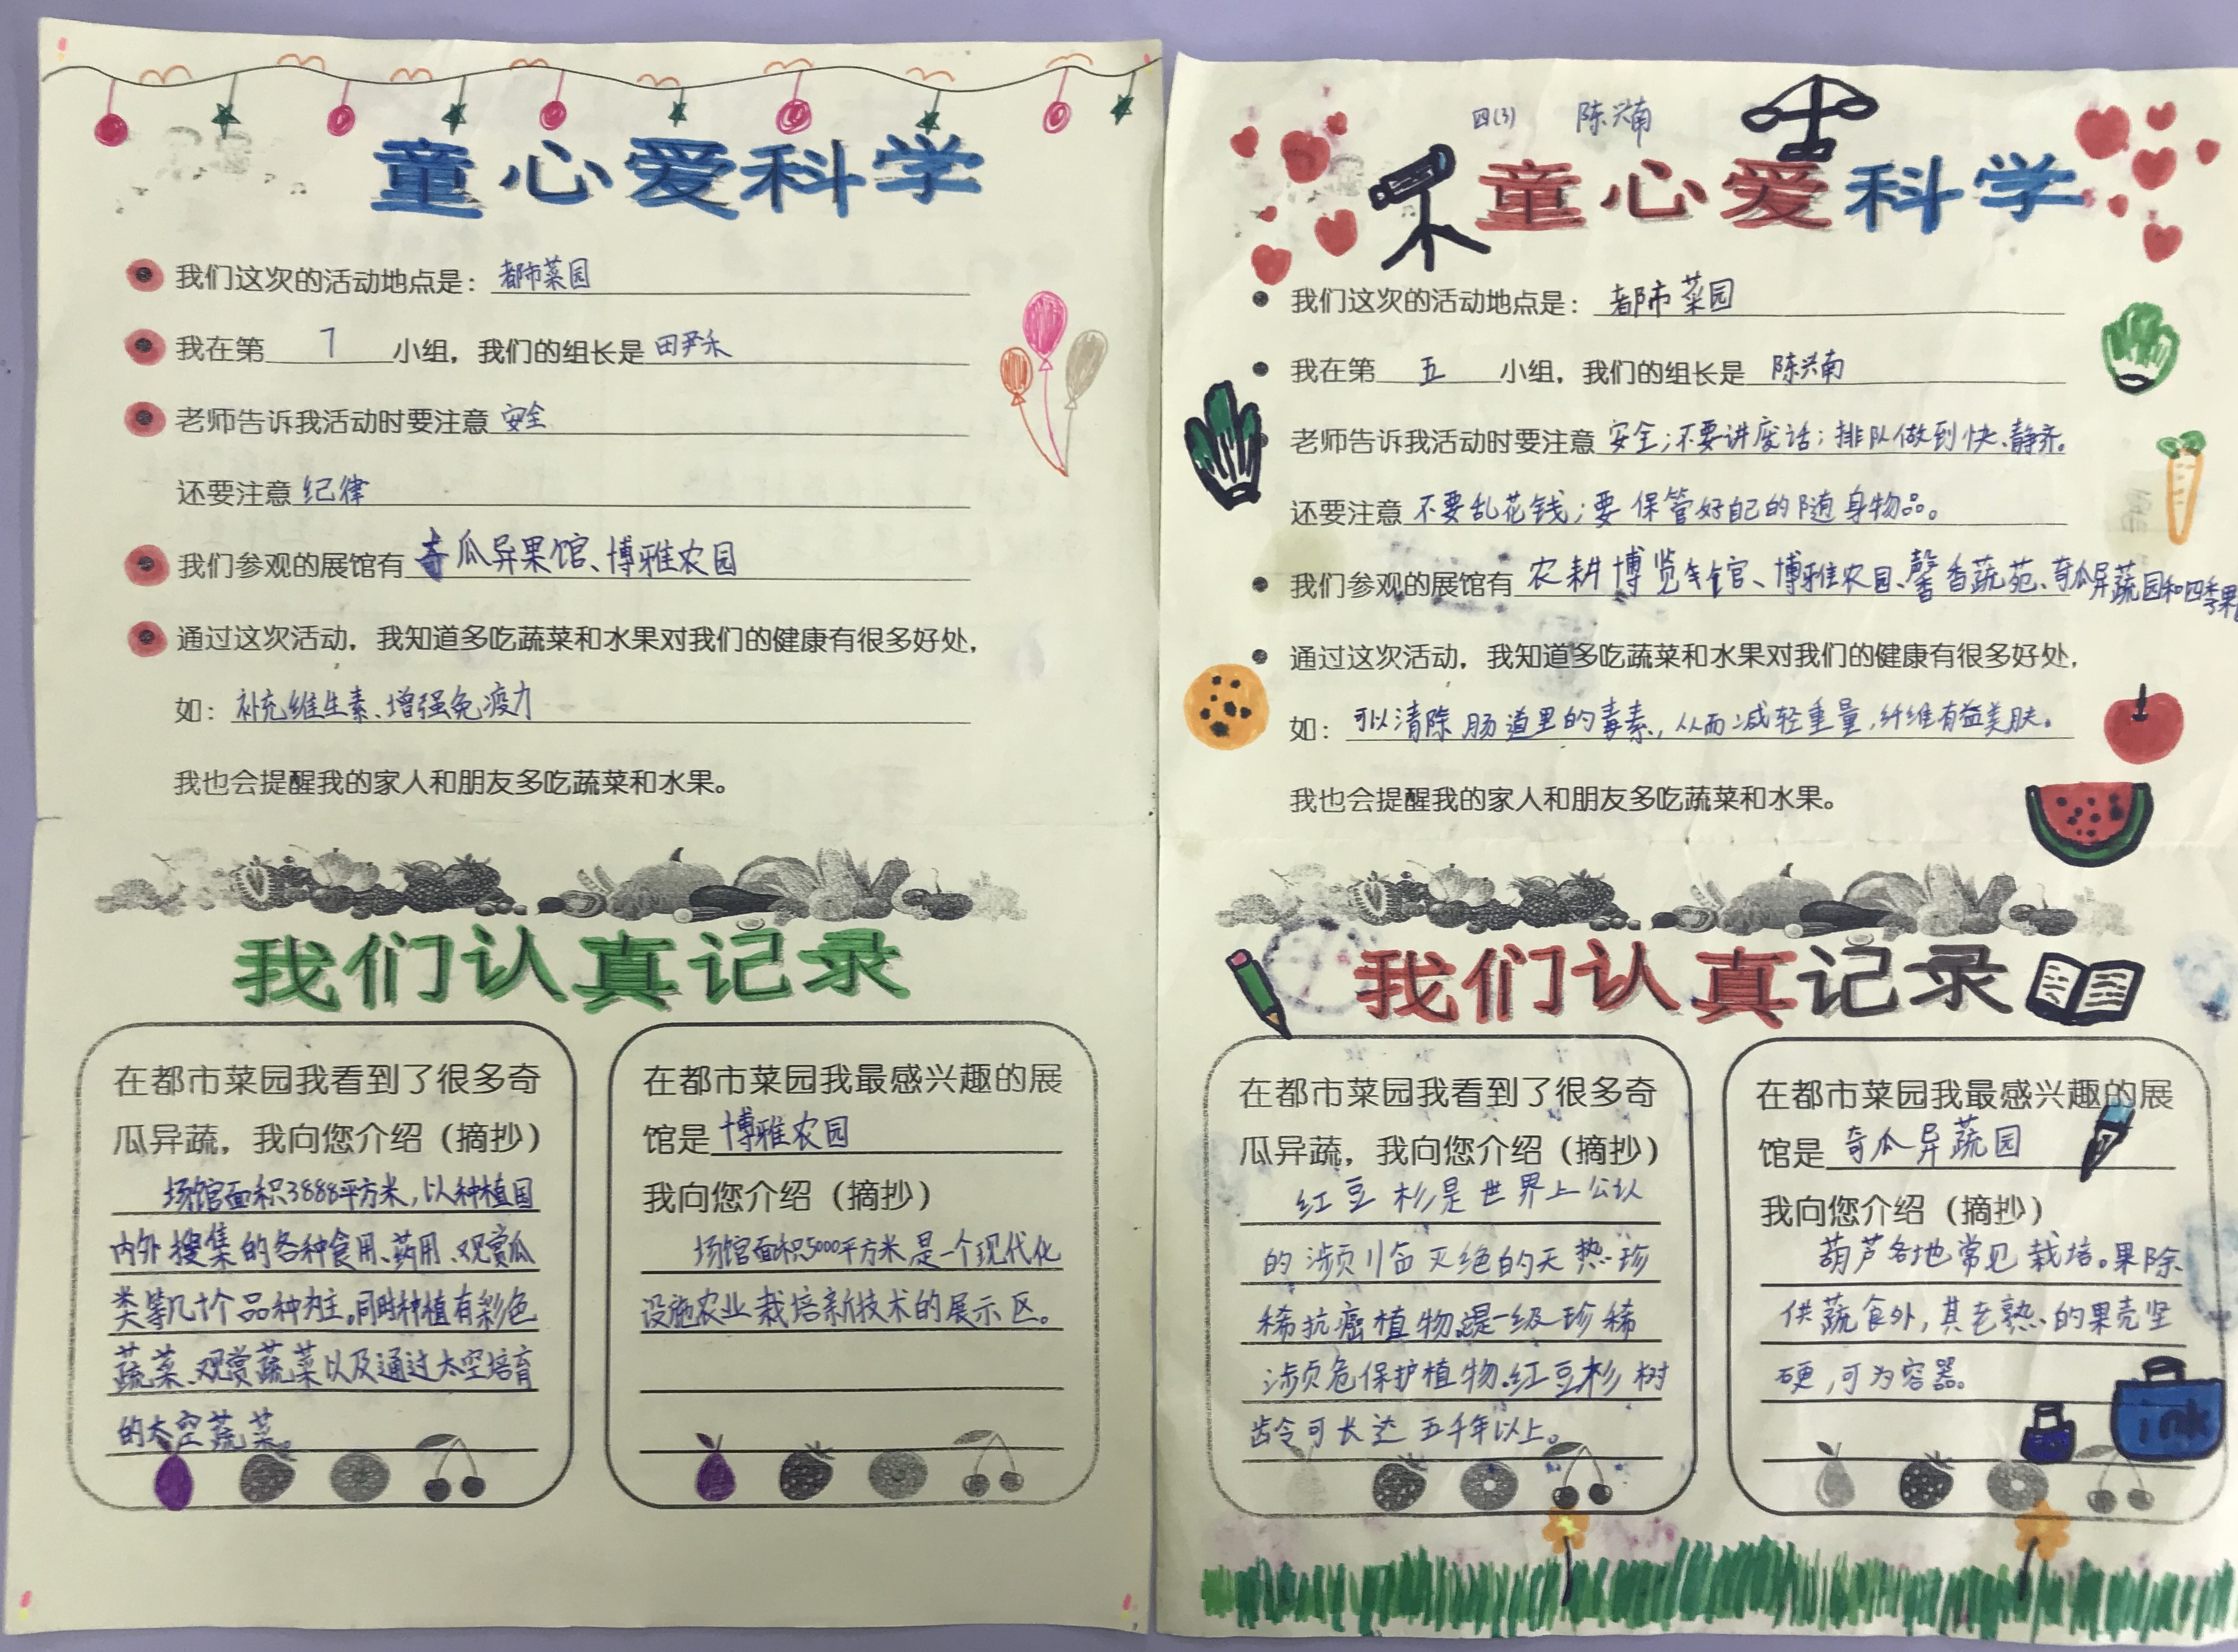 童心爱科学
我们这次的活动地点是：都市菜园
我在第 7 小组，我们的组长是 田尹禾
老师告诉我活动时要注意 安全
还要注意 纪律
我们参观的展馆有 奇瓜异果馆、博雅农园
通过这次活动，我知道多吃蔬菜和水果对我们的健康有很多好处，
如：补充维生素、增强免疫力
我也会提醒我的家人和朋友多吃蔬菜和水果。
我们认真记录
在都市菜园我看到了很多奇
瓜异蔬，我向您介绍（摘抄）
场馆面积3888平方米，以种植国
内外搜集的各种食用、药用、观赏瓜
类等几十个品种为主。同时种植有彩色
蔬菜、观赏蔬菜以及通过太空培育
的太空蔬菜。
在都市菜园我最感兴趣的展
馆是 博雅农园
我向您介绍（摘抄）
场馆面积5000平方米，是一个现代化
设施农业栽培新技术的展示区。
四(3) 陈兴南
童心爱科学
我们这次的活动地点是：都市菜园
我在第 五 小组，我们的组长是 陈兴南
老师告诉我活动时要注意 安全；不要讲废话；排队做到快、静、齐。
还要注意 不要乱花钱；要保管好自己的随身物品。
我们参观的展馆有 农耕博览馆、博雅农园、馨香蔬苑、奇瓜异蔬园和四季果
通过这次活动，我知道多吃蔬菜和水果对我们的健康有很多好处，
如：可以清除肠道里的毒素，从而减轻重量，纤维有益美肤。
我也会提醒我的家人和朋友多吃蔬菜和水果。
我们认真记录
在都市菜园我看到了很多奇
瓜异蔬，我向您介绍（摘抄）
红豆杉是世界上公认
的濒临灭绝的天热珍
稀抗癌植物，是一级珍稀
濒危保护植物。红豆杉树
龄可长达五千年以上。
在都市菜园我最感兴趣的展
馆是 奇瓜异蔬园
我向您介绍（摘抄）
葫芦各地常见栽培。果除
供蔬食外，其老熟的果壳坚
硬，可为容器。
ink